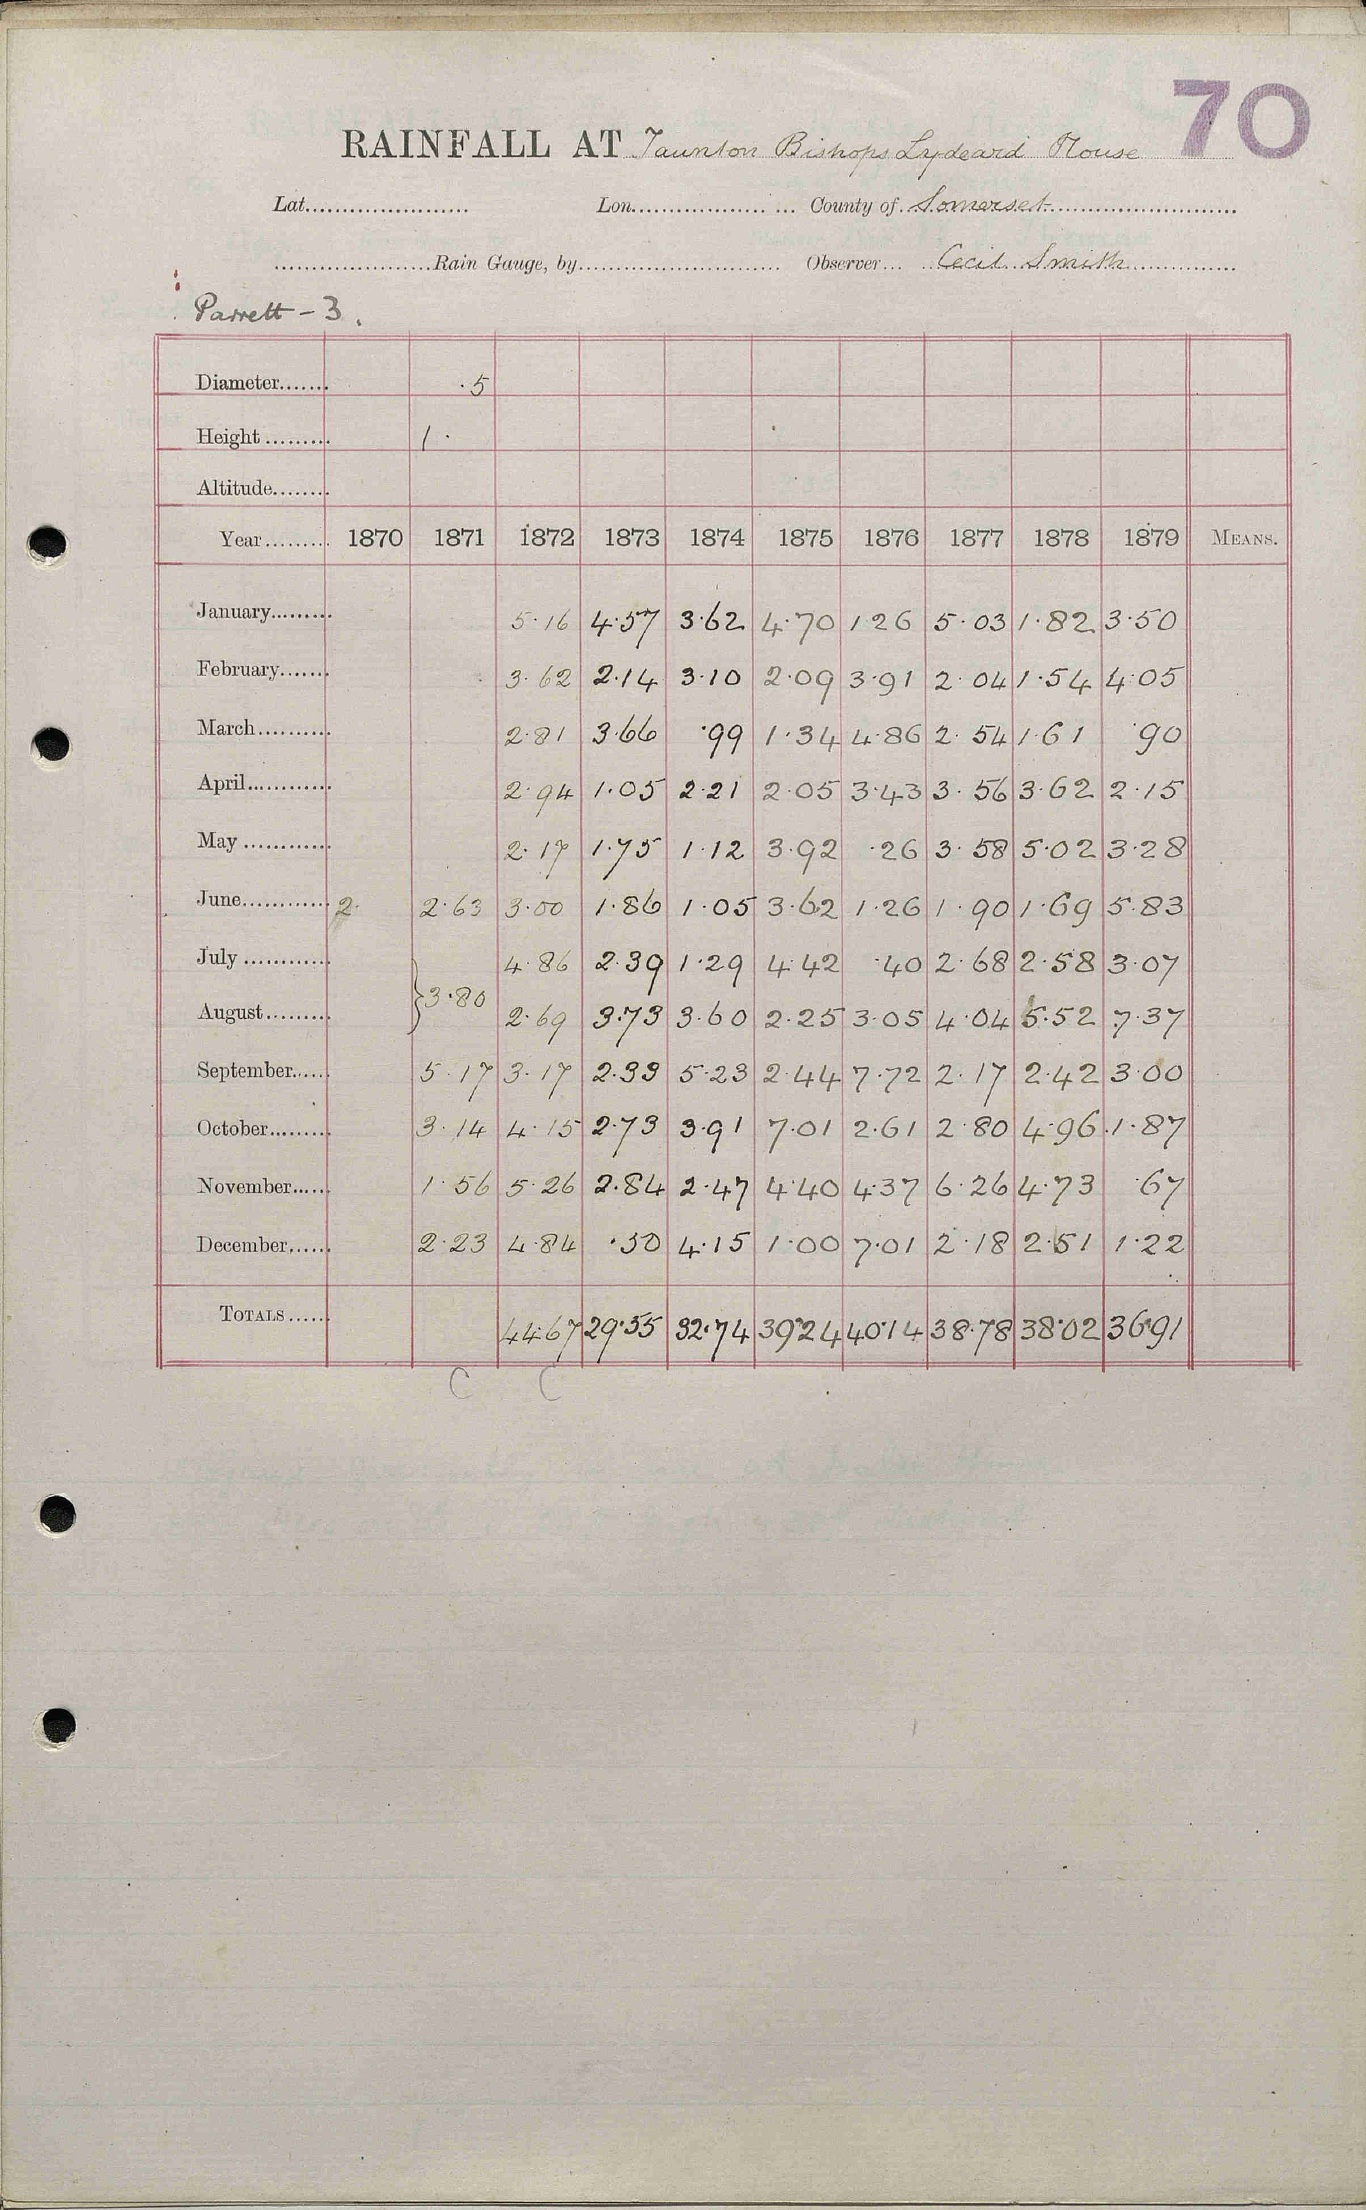 70
RAINFALL AT Taunton Bishops Lydeard House
Lat...................... Lon...................... County of Somerset
.....................Rain Gauge, by........................... Observer... Cecil Smith
Parrett - 3.
Diameter....... ·5
Height ......... 1 ·
Altitude........
Year......... 1870 1871 1872 1873 1874 1875 1876 1877 1878 1879 MEANS.
January......... 5·16 4·57 3·62 4·70 1·26 5·03 1·82 3·50
February....... 3·62 2·14 3·10 2·09 3·91 2·04 1·54 4·05
March.......... 2·81 3·66 ·99 1·34 4·86 2·54 1·61 ·90
April............ 2·94 1·05 2·21 2·05 3·43 3·56 3·62 2·15
May ............ 2·17 1·75 1·12 3·92 ·26 3·58 5·02 3·28
June............ 2· 2·63 3·00 1·86 1·05 3·62 1·26 1·90 1·69 5·83
July ............ 4·86 2·39 1·29 4·42 ·40 2·68 2·58 3·07
} 3·80
August......... 2·69 3·73 3·60 2·25 3·05 4·04 5·52 7·37
September...... 5·17 3·17 2·33 5·23 2·44 7·72 2·17 2·42 3·00
October......... 3·14 4·15 2·73 3·91 7·01 2·61 2·80 4·96 1·87
November...... 1·56 5·26 2·84 2·47 4·40 4·37 6·26 4·73 ·67
December...... 2·23 4·84 ·50 4·15 1·00 7·01 2·18 2·51 1·22
TOTALS...... 44·67 29·55 32·74 39·24 40·14 38·78 38·02 36·91
C C